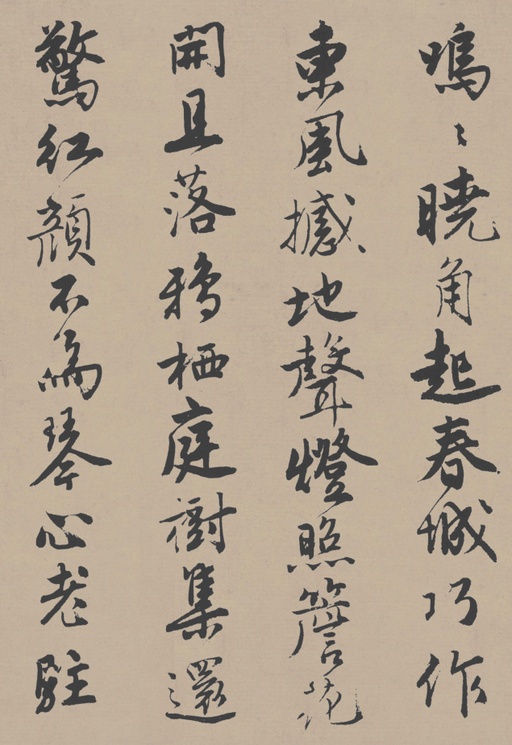 嗚〻曉角起春城巧作
東風撼地聲燈照簷花
開且落鴉栖庭樹集還
驚紅顔不為琴心老駐